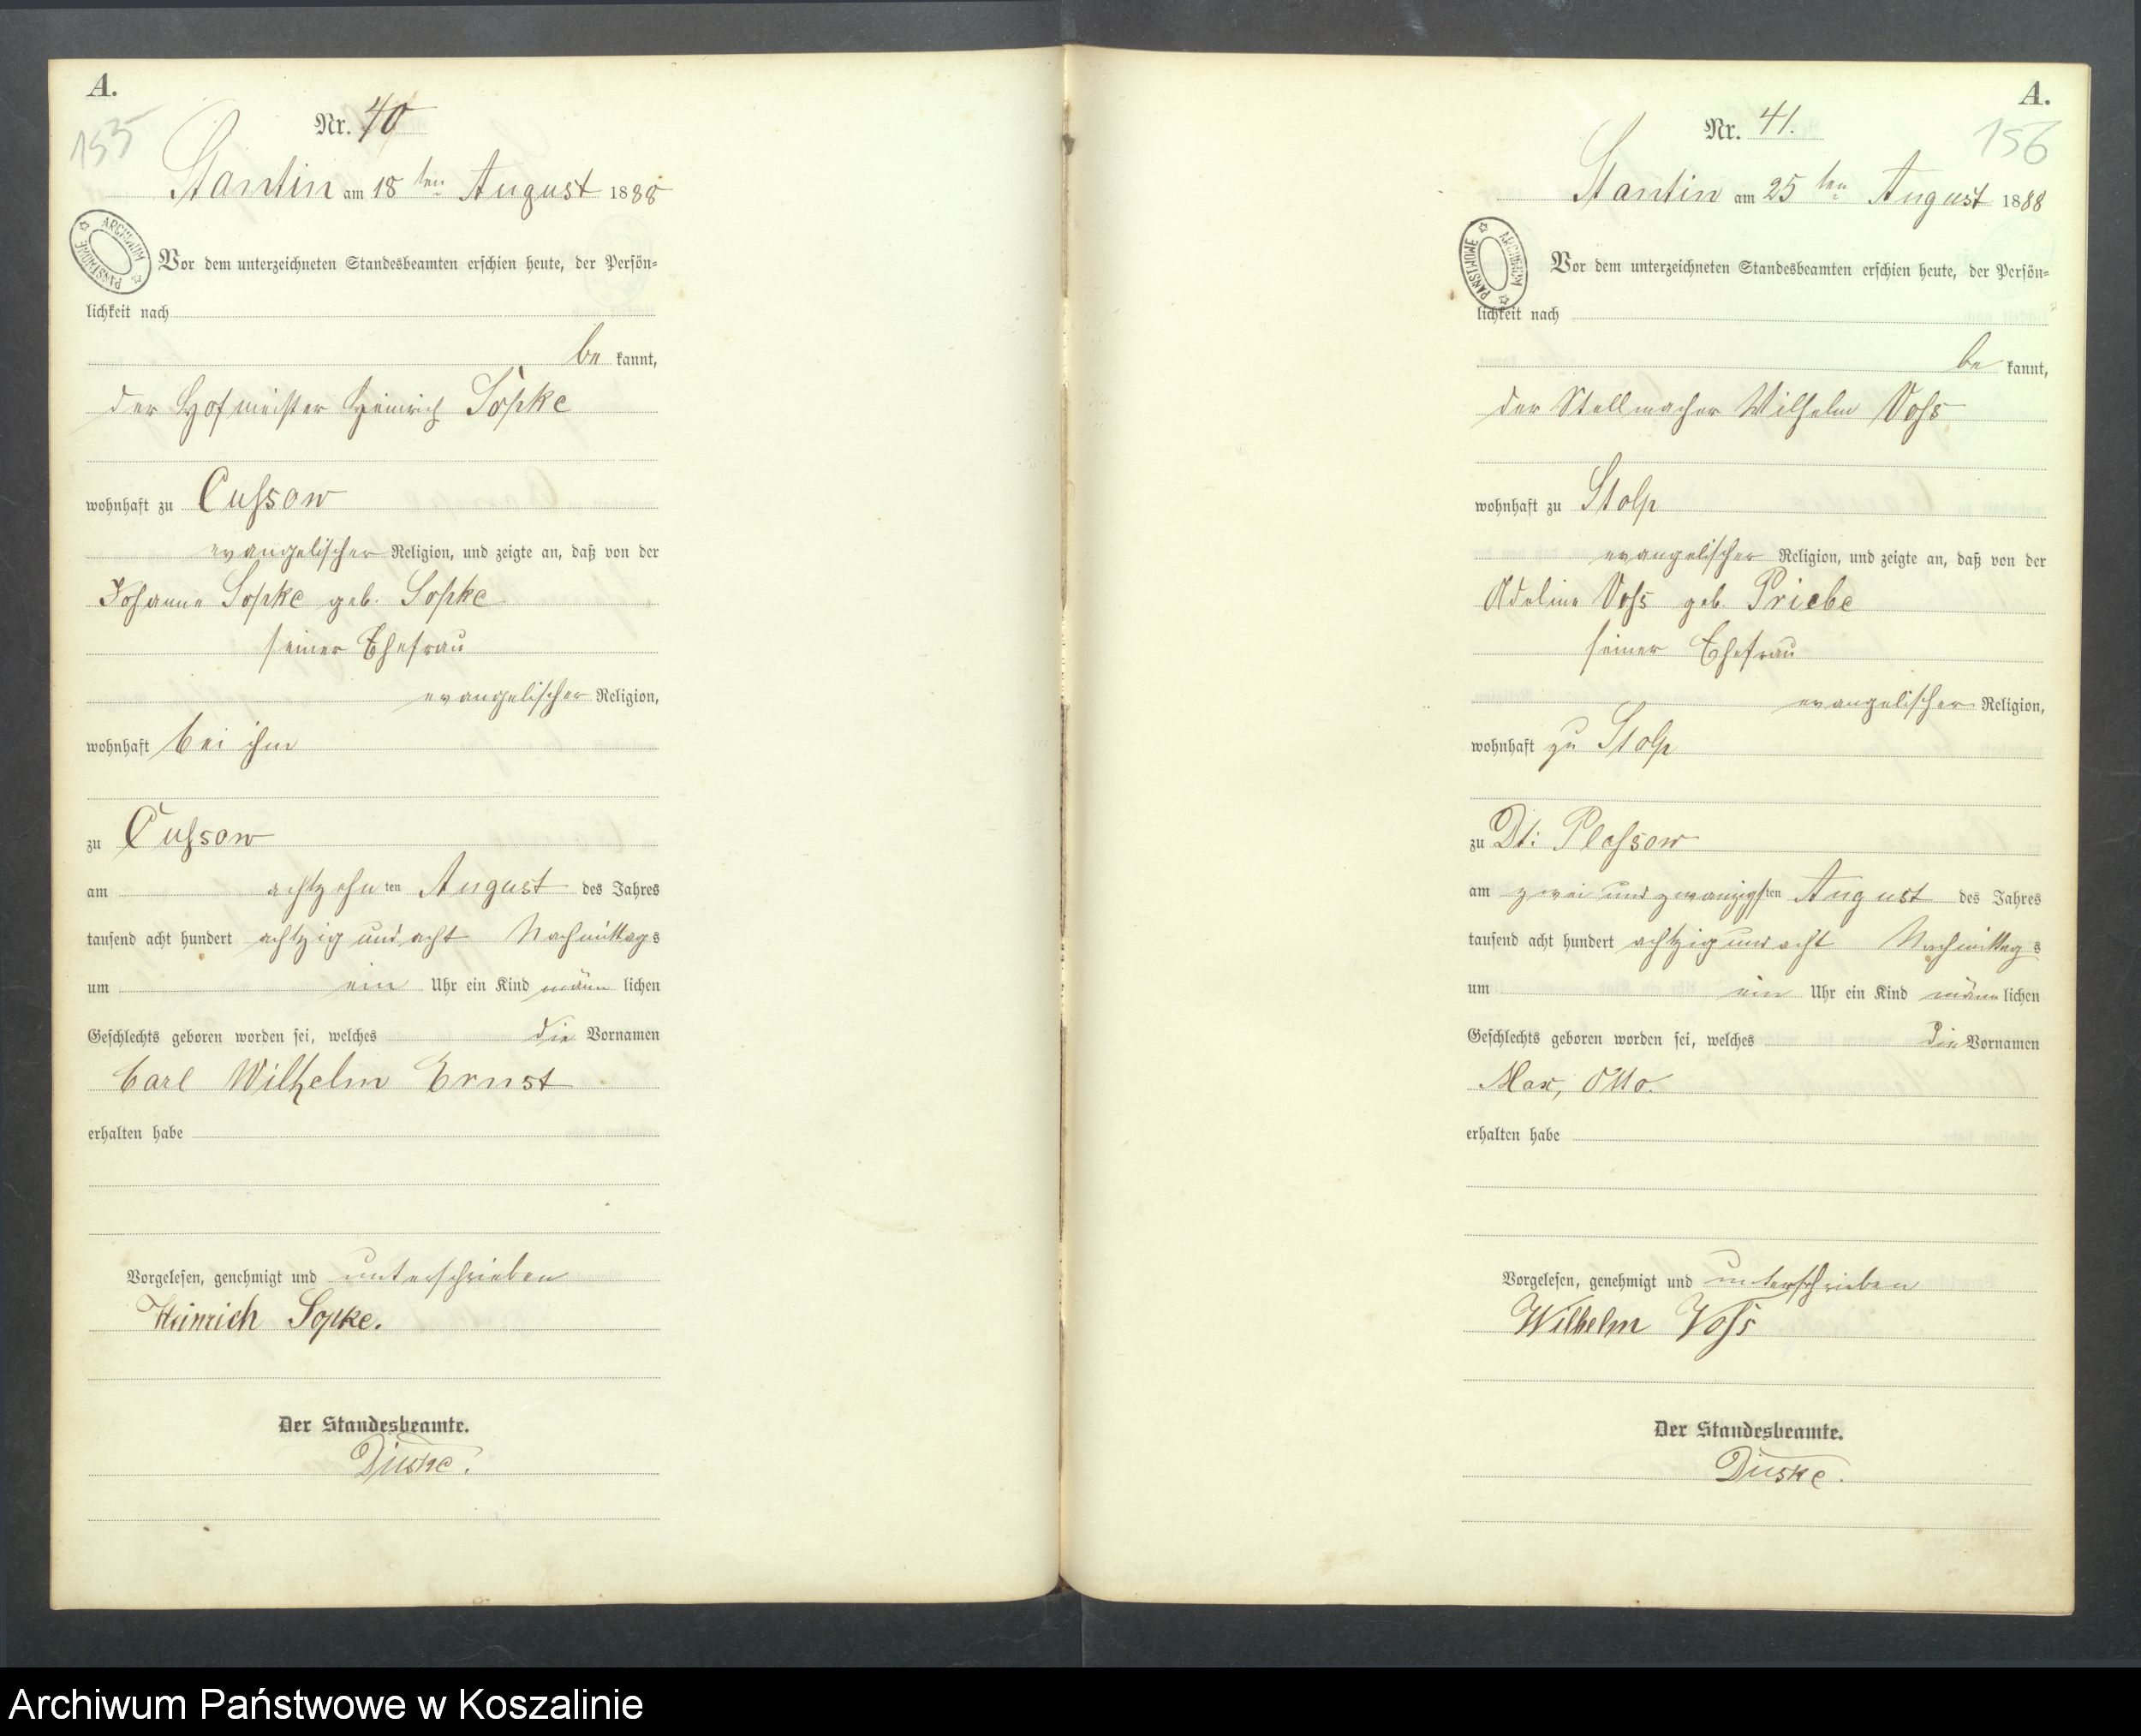 A.
155
Nr. 40
Stantin am 18 ten August 1888
ARCHIWUM PAŃSTWOWE
Vor dem unterzeichneten Standesbeamten erschien heute, der Persön=
lichkeit nach
be kannt,
der Hofmeister Heinrich Sopke
wohnhaft zu Cussow
evangelischer Religion, und zeigte an, daß von der
Johanne Sopke geb. Sopke
seiner Ehefrau
evangelischer Religion,
wohnhaft bei ihm
zu Cussow
am achtzehn ten August des Jahres
tausend acht hundert achtzig und acht Nachmittags
um ein Uhr ein Kind männ lichen
Geschlechts geboren worden sei, welches die Vornamen
Carl Wilhelm Ernst
erhalten habe
Vorgelesen, genehmigt und unterschrieben
Heinrich Sopke.
Der Standesbeamte.
Düske.
A.
156
Nr. 41.
Stantin am 25 ten August 1888
ARCHIWUM PAŃSTWOWE
Vor dem unterzeichneten Standesbeamten erschien heute, der Persön=
lichkeit nach
be kannt,
der Stellmacher Wilhelm Voss
wohnhaft zu Stolp
evangelischer Religion, und zeigte an, daß von der
Adeline Voss geb. Priebe
seiner Ehefrau
evangelischer Religion,
wohnhaft zu Stolp
zu Dt: Plassow
am zwei und zwanzigsten August des Jahres
tausend acht hundert achtzig und acht Nachmittags
um ein Uhr ein Kind männlichen
Geschlechts geboren worden sei, welches die Vornamen
Max, Otto.
erhalten habe
Vorgelesen, genehmigt und unterschrieben
Wilhelm Voss
Der Standesbeamte.
Düske.
Archiwum Państwowe w Koszalinie